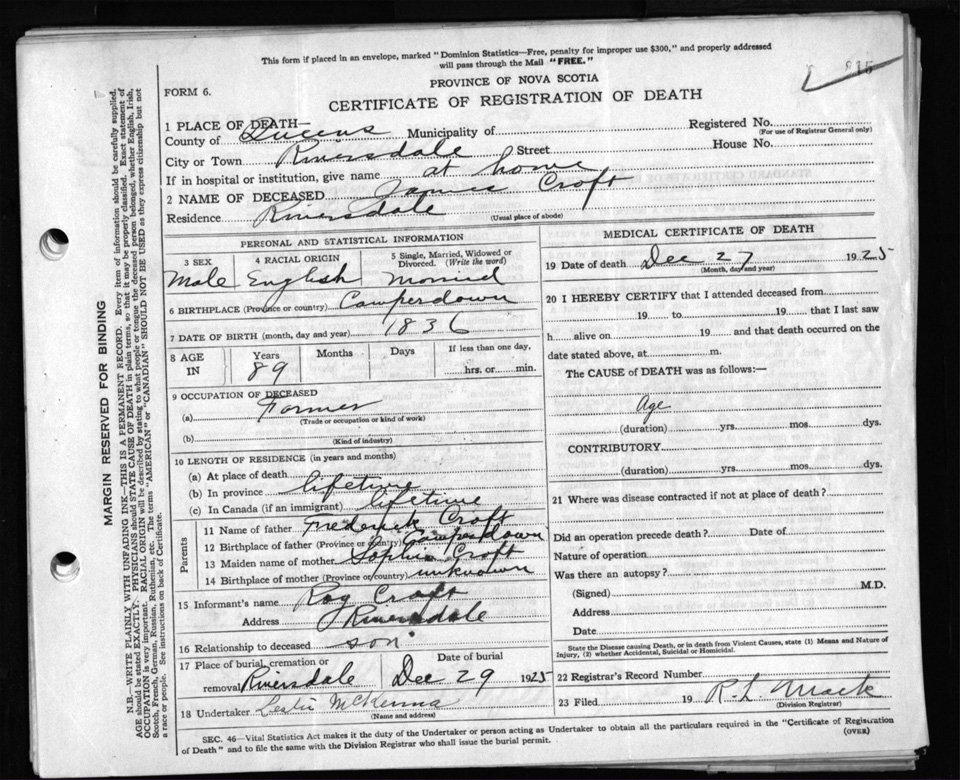 This form if placed in an envelope, marked "Dominion Statistics—Free, penalty for improper use $300," and properly addressed
will pass through the Mail "FREE."
PROVINCE OF NOVA SCOTIA
FORM 6.
CERTIFICATE OF REGISTRATION OF DEATH
1 PLACE OF DEATH—
County of Queens Municipality of Registered No.
(For use of Registrar General only)
City or Town Riversdale Street House No.
If in hospital or institution, give name at home
2 NAME OF DECEASED James Croft
Residence Riversdale (Usual place of abode)
PERSONAL AND STATISTICAL INFORMATION
3 SEX 4 RACIAL ORIGIN 5 Single, Married, Widowed or
Divorced. (Write the word)
Male English Married
6 BIRTHPLACE (Province or country) Camperdown
7 DATE OF BIRTH (month, day and year) 1836
8 AGE IN Years Months Days If less than one day,
89 hrs. or min.
9 OCCUPATION OF DECEASED
(a) Farmer
(Trade or occupation or kind of work)
(b)
(Kind of industry)
10 LENGTH OF RESIDENCE (in years and months)
(a) At place of death
(b) In province lifetime
(c) In Canada (if an immigrant) lifetime
Parents
11 Name of father Frederick Croft
12 Birthplace of father (Province or country) Camperdown
13 Maiden name of mother Sophia Croft
14 Birthplace of mother (Province or country) unknown
15 Informant's name Roy Croft
Address Riversdale
16 Relationship to deceased son
17 Place of burial, cremation or Date of burial
removal Riversdale Dec 29 1925
18 Undertaker Leslie McKenna
(Name and address)
MEDICAL CERTIFICATE OF DEATH
19 Date of death Dec 27 1925
(Month, day and year)
20 I HEREBY CERTIFY that I attended deceased from
19 to 19 that I last saw
h alive on 19 and that death occurred on the
date stated above, at m.
The CAUSE of DEATH was as follows:—
Age
(duration) yrs. mos. dys.
CONTRIBUTORY
(duration) yrs. mos. dys.
21 Where was disease contracted if not at place of death?
Did an operation precede death? Date of
Nature of operation
Was there an autopsy?
(Signed) M.D.
Address
Date
State the Disease causing Death, or in death from Violent Causes, state (1) Means and Nature of
Injury, (2) whether Accidental, Suicidal or Homicidal.
22 Registrar's Record Number
23 Filed 19 R. L. Mack
(Division Registrar)
SEC. 46—Vital Statistics Act makes it the duty of the Undertaker or person acting as Undertaker to obtain all the particulars required in the "Certificate of Registration
of Death" and to file the same with the Division Registrar who shall issue the burial permit. (OVER)
MARGIN RESERVED FOR BINDING
N.B.—WRITE PLAINLY WITH UNFADING INK—THIS IS A PERMANENT RECORD. Every item of information should be carefully supplied.
AGE should be stated EXACTLY. PHYSICIANS should STATE CAUSE OF DEATH in plain terms, so that it may be properly classified. Exact statement of
OCCUPATION is very important. RACIAL ORIGIN will be described by stating to what people or tongue the deceased person belonged, whether English, Irish,
Scotch, French, German, Russian, Ruthenian, etc. The terms "AMERICAN" or "CANADIAN" SHOULD NOT BE USED as they express citizenship but not
a race or people. See instructions on back of Certificate.